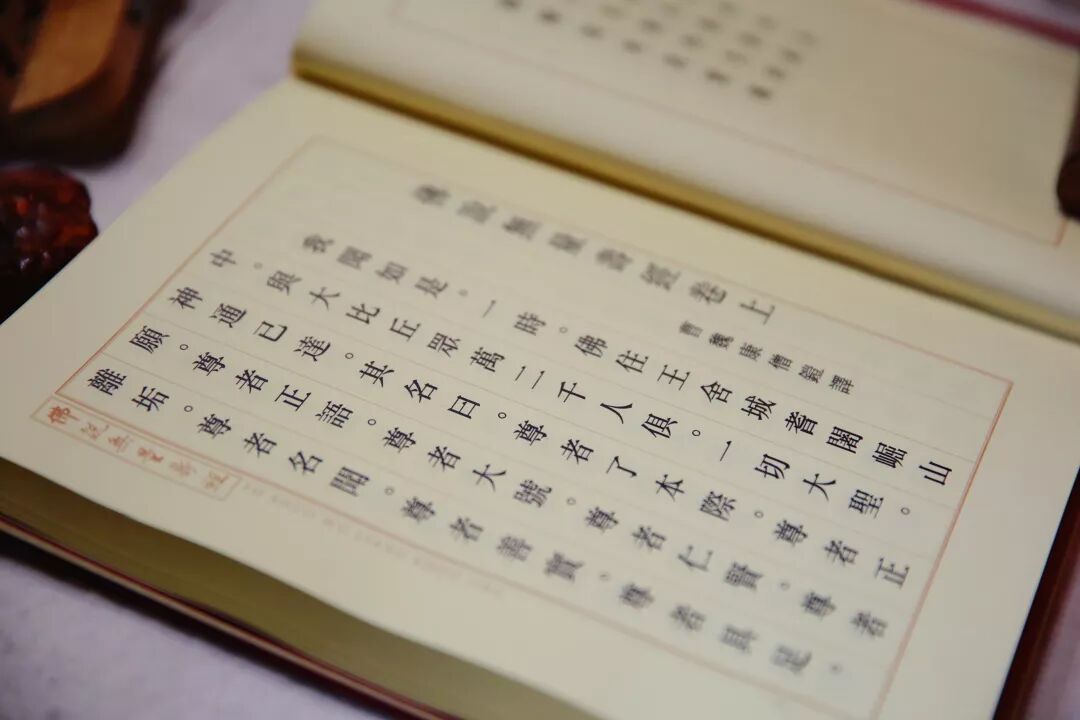 佛說無量壽經卷上
曹魏康僧鎧譯
我聞如是。一時。佛住王舍城耆闍崛山
中。與大比丘眾萬二千人俱。一切大聖。
神通已達。其名曰。尊者了本際。尊者正
願。尊者正語。尊者大號。尊者仁賢。尊者
離垢。尊者名聞。尊者善實。尊者具足。
佛說無量壽經